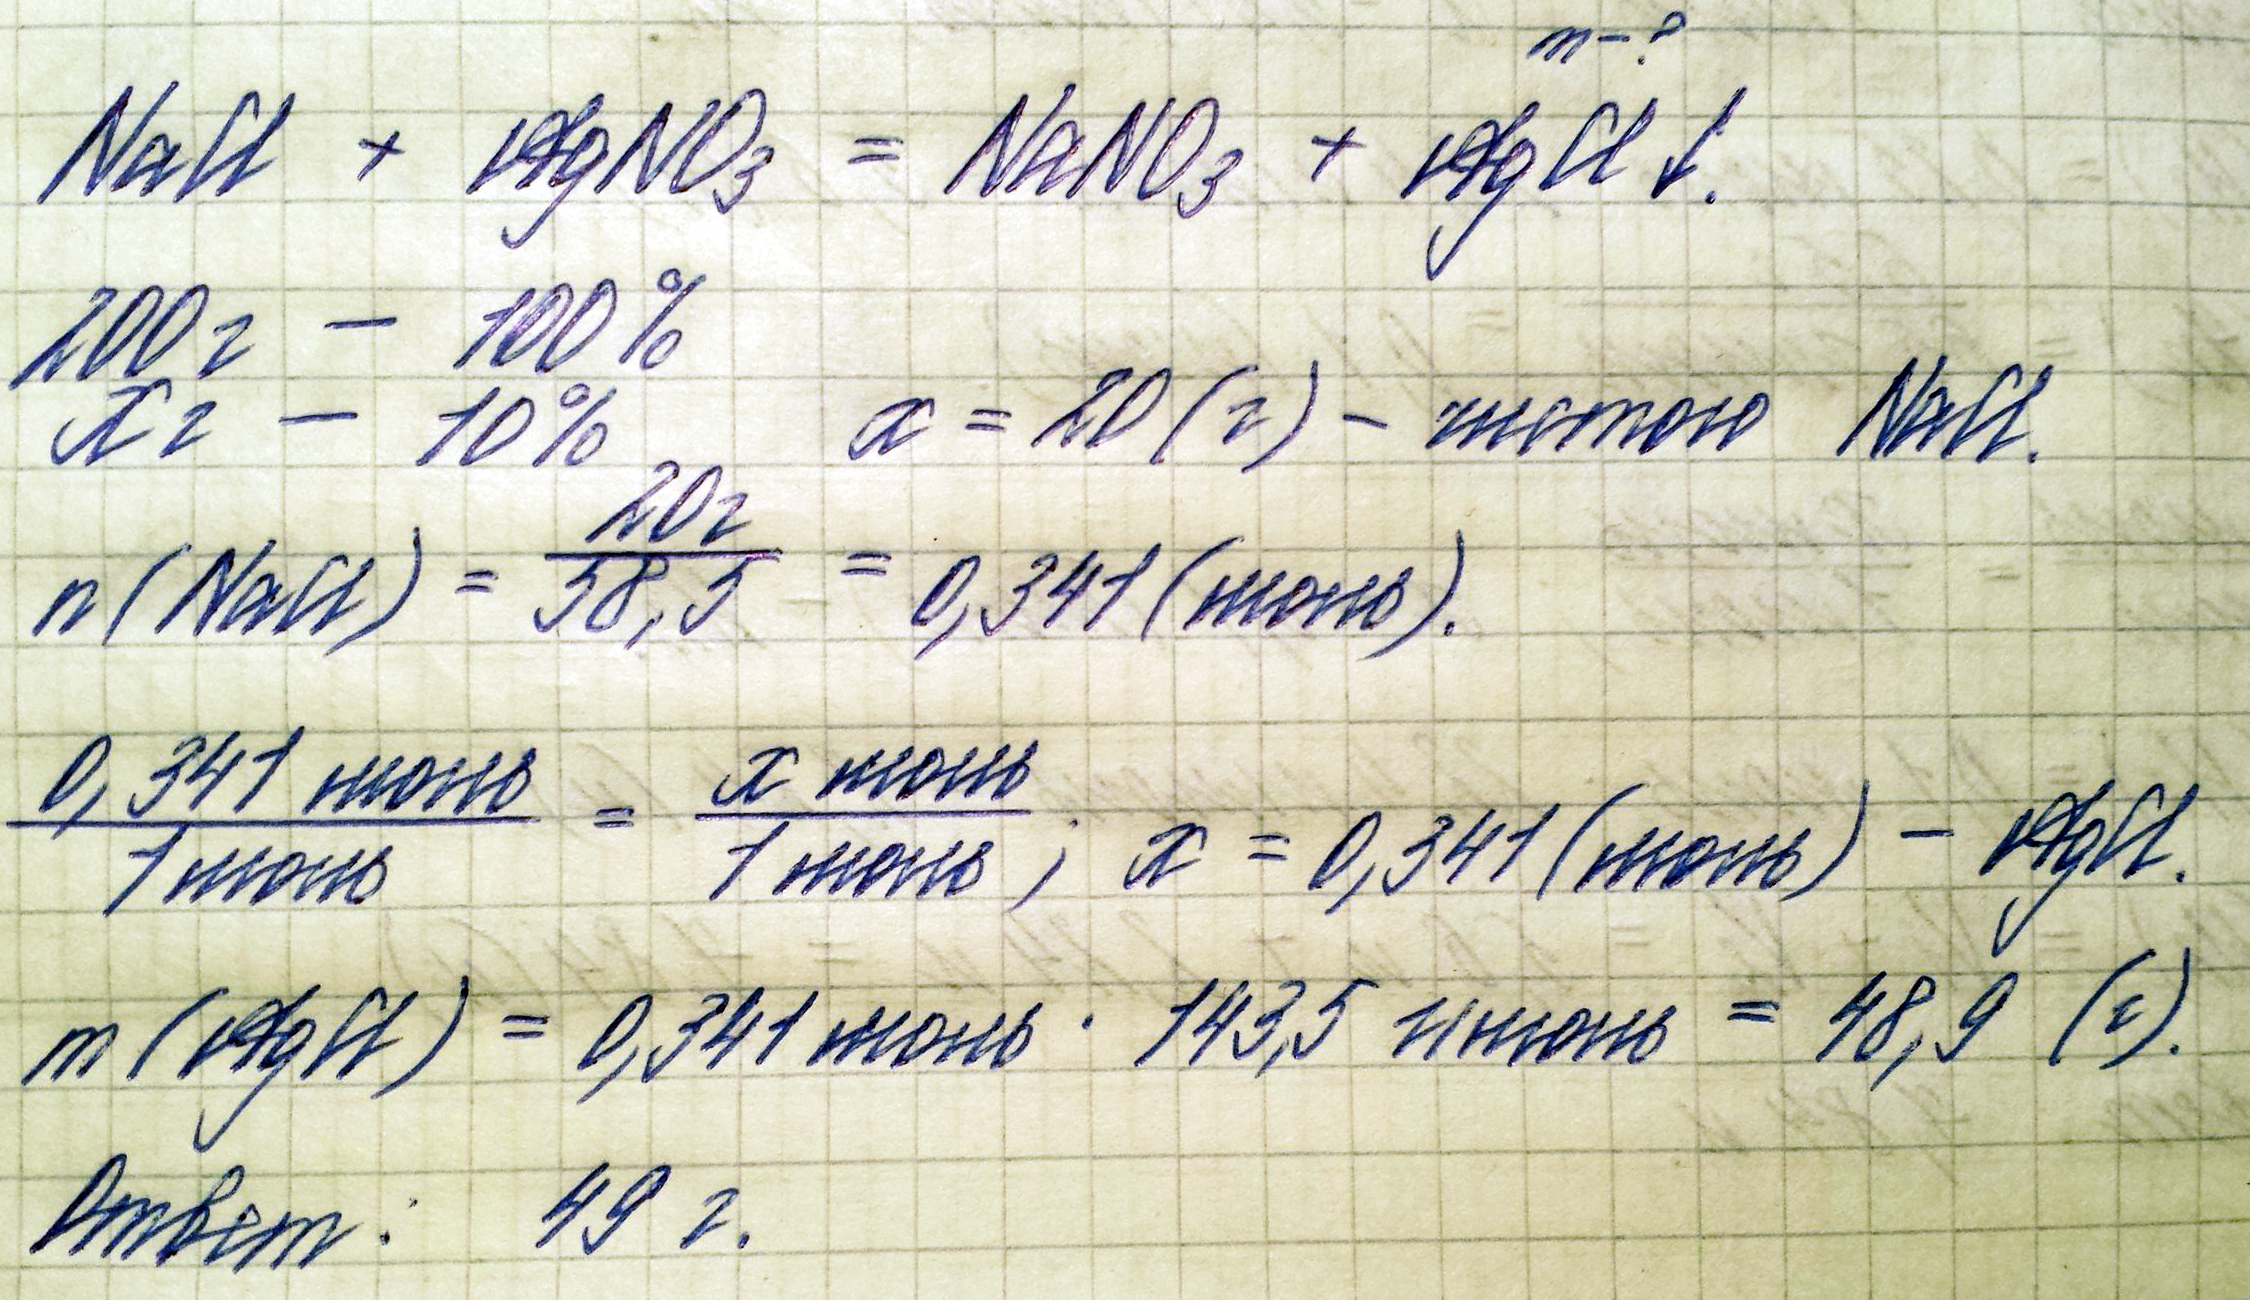 m-?
NaCl + AgNO₃ = NaNO₃ + AgCl↓.
200г - 100%
xг - 10% x = 20(г) - чистого NaCl.
n(NaCl) = 20г/58,5 = 0,341(моль).
0,341 моль/1 моль = x моль/1 моль; x = 0,341(моль) - AgCl.
m(AgCl) = 0,341 моль · 143,5 г/моль = 48,9 (г).
Ответ: 49 г.